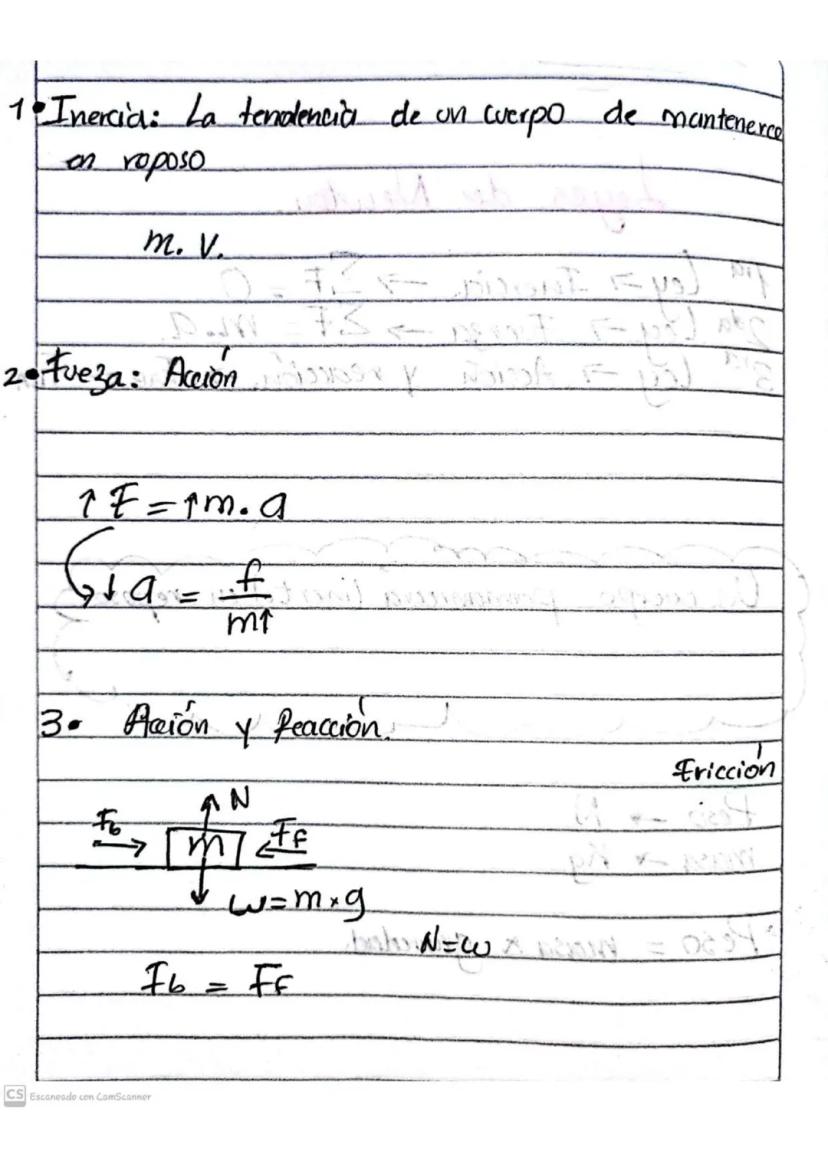 1• Inercia: La tendencia de un cuerpo de mantenerce
en roposo
m. v.
2• Fueza: Acción
↑ F = ↑m. a
↓ a = f
m↑
3• Acción y Reacción.
Fricción
N
Fb
m
Ff
w = m × g
N = w
Fb = Ff
CS Escaneado con CamScanner